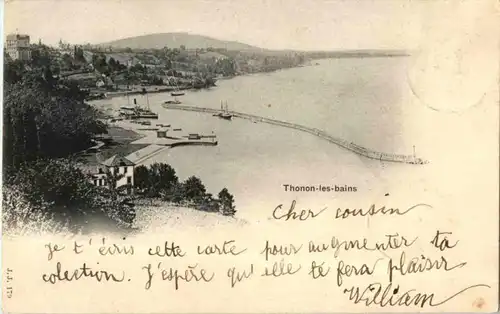 Thonon-les-bains
Cher cousin
Je t'écris cette carte pour augmenter ta
colection. J'espère qu'elle te fera plaisir
William
J.J. 179